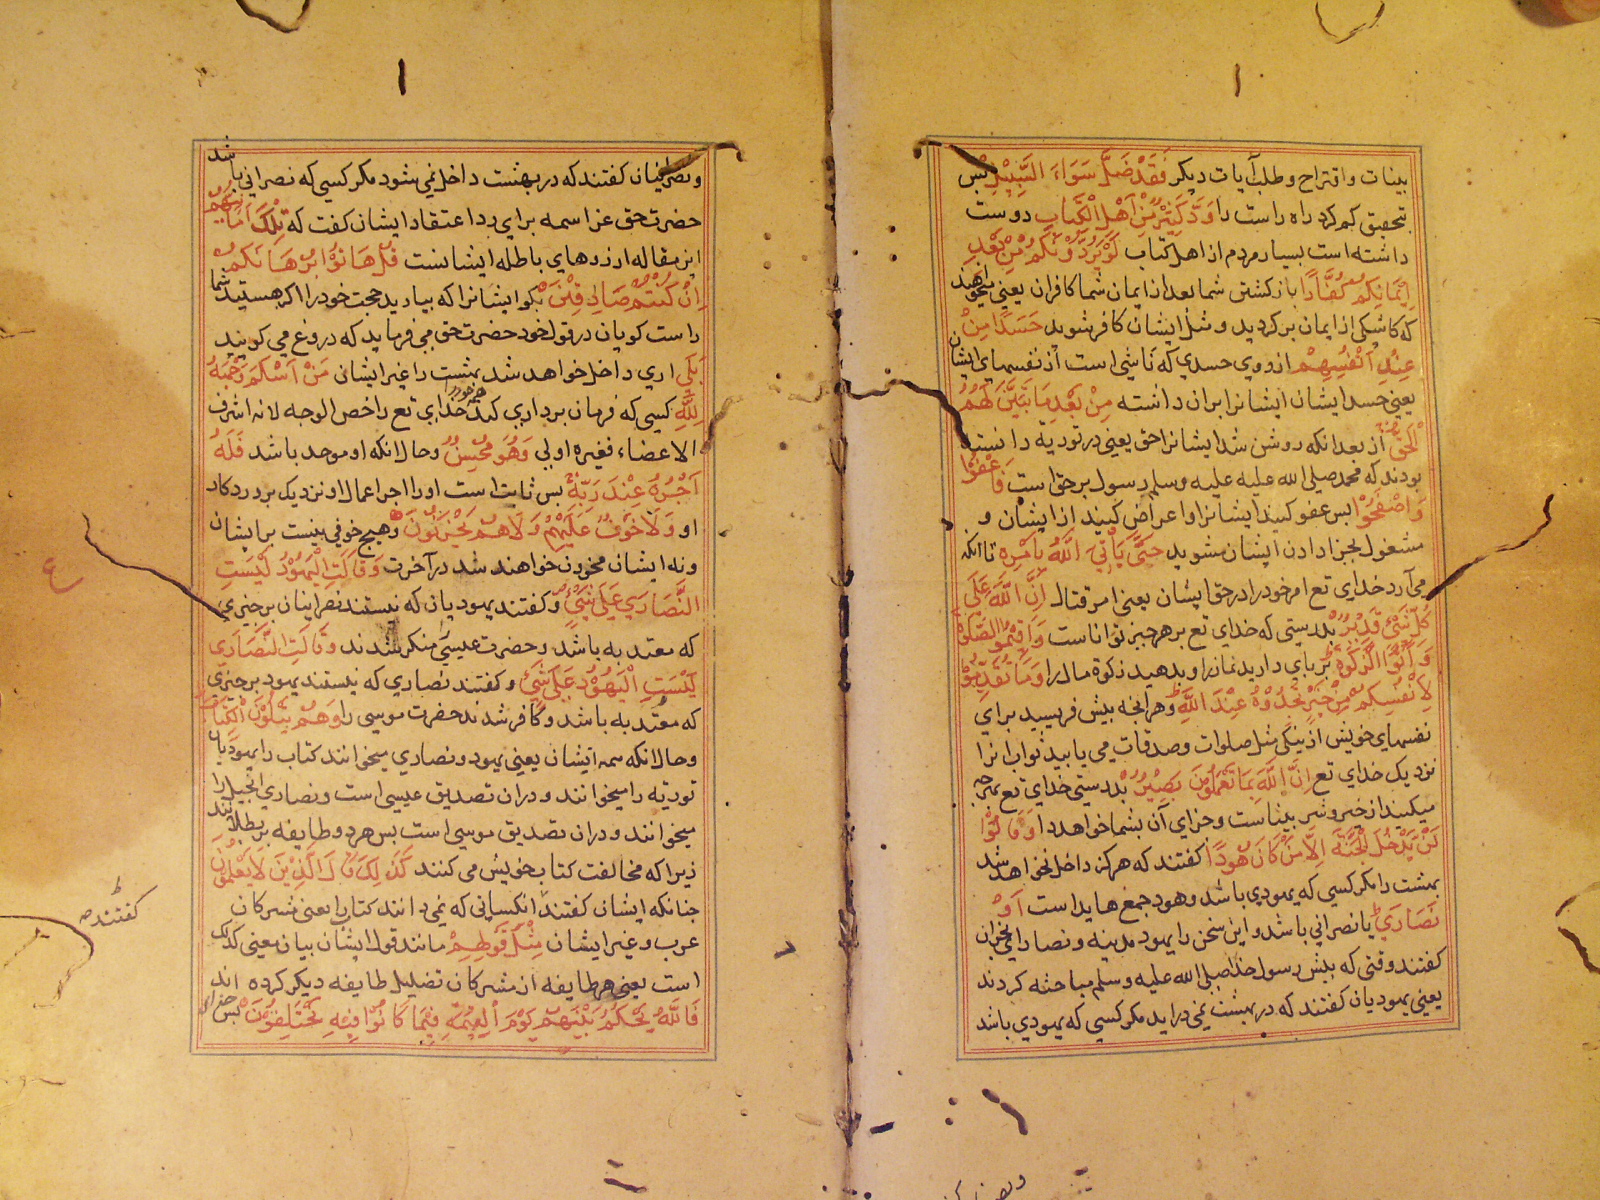 بینات و اقتراح و طلب آیات دیکر فَقَدْ ضَلَّ سَوَاءَ السَّبِیْلِ پس
بتحقیق کم کرد راه راست را وَدَّ کَثِیْرٌ مِّنْ اَهْلِ الْکِتَابِ دوست
داشته است بسیار مردم از اهل کتاب لَوْ یَرُدُّوْنَکُمْ مِّنْ بَعْدِ
اِیْمَانِکُمْ کُفَّارًا باز کشتن شما بعد از ایمان شما کافران یعنی میخواهند
که کاشکی از ایمان بر کردید و مثل ایشان کافر شوید حَسَدًا مِّنْ
عِنْدِ اَنْفُسِهِمْ از روی حسدی که ناشی است از نفسهای ایشان
یعنی حسد ایشان ایشانرا بران داشته مِنْ بَعْدِ مَا تَبَیَّنَ لَهُمُ
الْحَقُّ از بعد انکه روشن شد ایشانرا حق یعنی در توریة دانسته
بودند که محمد صلی الله علیه علیه وسلم رسول بر حق است فَاعْفُوْا
وَاصْفَحُوْا پس عفو کنید ایشانرا و اعراض کنید از ایشان و
مشغول بجزا دادن ایشان مشوید حَتّٰی یَأْتِیَ اللّٰهُ بِاَمْرِهٖ تا انکه
می آرد خدای تع امر خود را در حق ایشان یعنی امر قتال اِنَّ اللّٰهَ عَلٰی
کُلِّ شَیْءٍ قَدِیْرٌ بدرستی که خدای تع بر هر چیز تواناست وَاَقِیْمُوا الصَّلٰوةَ
وَاٰتُوا الزَّکٰوةَ بر پای دارید نماز را و بدهید زکوة مال را وَمَا تُقَدِّمُوْا
لِاَنْفُسِکُمْ مِّنْ خَیْرٍ تَجِدُوْهُ عِنْدَ اللّٰهِ و هر انچه پیش فرستید برای
نفسهای خویش از نیکی مثل صلوات و صدقات می یابید ثواب انرا
نزدیک خدای تع اِنَّ اللّٰهَ بِمَا تَعْمَلُوْنَ بَصِیْرٌ بدرستی خدای تع بهرچه
میکنید از خیر و شر بیناست و جزای آن بشما خواهد داد وَقَالُوْا
لَنْ یَّدْخُلَ الْجَنَّةَ اِلَّا مَنْ کَانَ هُوْدًا کفتند که هرکز داخل نخواهد شد
بهشت را مکر کسی که یهودی باشد و هود جمع هاید است اَوْ
نَصَارٰی یا نصرانی باشد و این سخن را یهود مدینه و نصارای نجران
کفتند وقتی که پیش رسول خدا صلی الله علیه وسلم مباحثه کردند
یعنی یهودیان کفتند که در بهشت نمی دراید مکر کسی که یهودی باشد
و نصرانیان کفتند که در بهشت داخل نمی شود مکر کسی که نصرانی باشد
حضرت حق عز اسمه برای رد اعتقاد ایشان کفت که تِلْکَ اَمَانِیُّهُمْ
این مقاله ارزوهای باطله ایشانست قُلْ هَاتُوْا بُرْهَانَکُمْ
اِنْ کُنْتُمْ صَادِقِیْنَ بکو ایشانرا که بیارید حجت خود را اکر هستید شما
راست کویان در قول خود حضرت حق می فرماید که دروغ می کویند
بَلٰی اری داخل خواهد شد بهشت را غیر ایشان مَنْ اَسْلَمَ وَجْهَهُ
لِلّٰهِ کسی که فرمان برداری کند خدای تع را خص الوجه لانه اشرف
الاعضاء فغیره اولی وَهُوَ مُحْسِنٌ و حالانکه او موحد باشد فَلَهٗ
اَجْرُهٗ عِنْدَ رَبِّهٖ پس ثابت است او را اجر اعمال او نزدیک پروردکار
او وَلَا خَوْفٌ عَلَیْهِمْ وَلَاهُمْ یَحْزَنُوْنَ و هیچ خوفی نیست بر ایشان
و نه ایشان محزون خواهند شد در آخرت وَقَالَتِ الْیَهُوْدُ لَیْسَتِ
النَّصَارٰی عَلٰی شَیْءٍ و کفتند یهودیان که نیستند نصرانیان بر چیزی
که معتد به باشد و حضرت عیسی را منکر شدند وَقَالَتِ النَّصَارٰی
لَیْسَتِ الْیَهُوْدُ عَلٰی شَیْءٍ و کفتند نصاری که نیستند یهود بر چیزی
که معتد به باشد و کافر شدند حضرت موسی را وَهُمْ یَتْلُوْنَ الْکِتَابَ
و حالانکه همه ایشان یعنی یهود و نصاری میخوانند کتاب را یهودیان
توریة را میخوانند و دران تصدیق عیسی است و نصاری انجیل را
میخوانند و دران تصدیق موسی است پس هر دو طایفه بر بطلانند
زیرا که مخالفت کتاب خویش می کنند کَذٰلِکَ قَالَ الَّذِیْنَ لَایَعْلَمُوْنَ
چنانکه ایشان کفتند انکسانی که نمی دانند کتاب را یعنی مشرکان
عرب و غیر ایشان مِثْلَ قَوْلِهِمْ مانند قول ایشان بیان معنی کذلک
است یعنی هر طایفه از مشرکان تضلیل طایفه دیکر کرده اند
فَاللّٰهُ یَحْکُمُ بَیْنَهُمْ یَوْمَ الْقِیٰمَةِ فِیْمَا کَانُوْا فِیْهِ یَخْتَلِفُوْنَ پس خدای
ع
کفتند صه